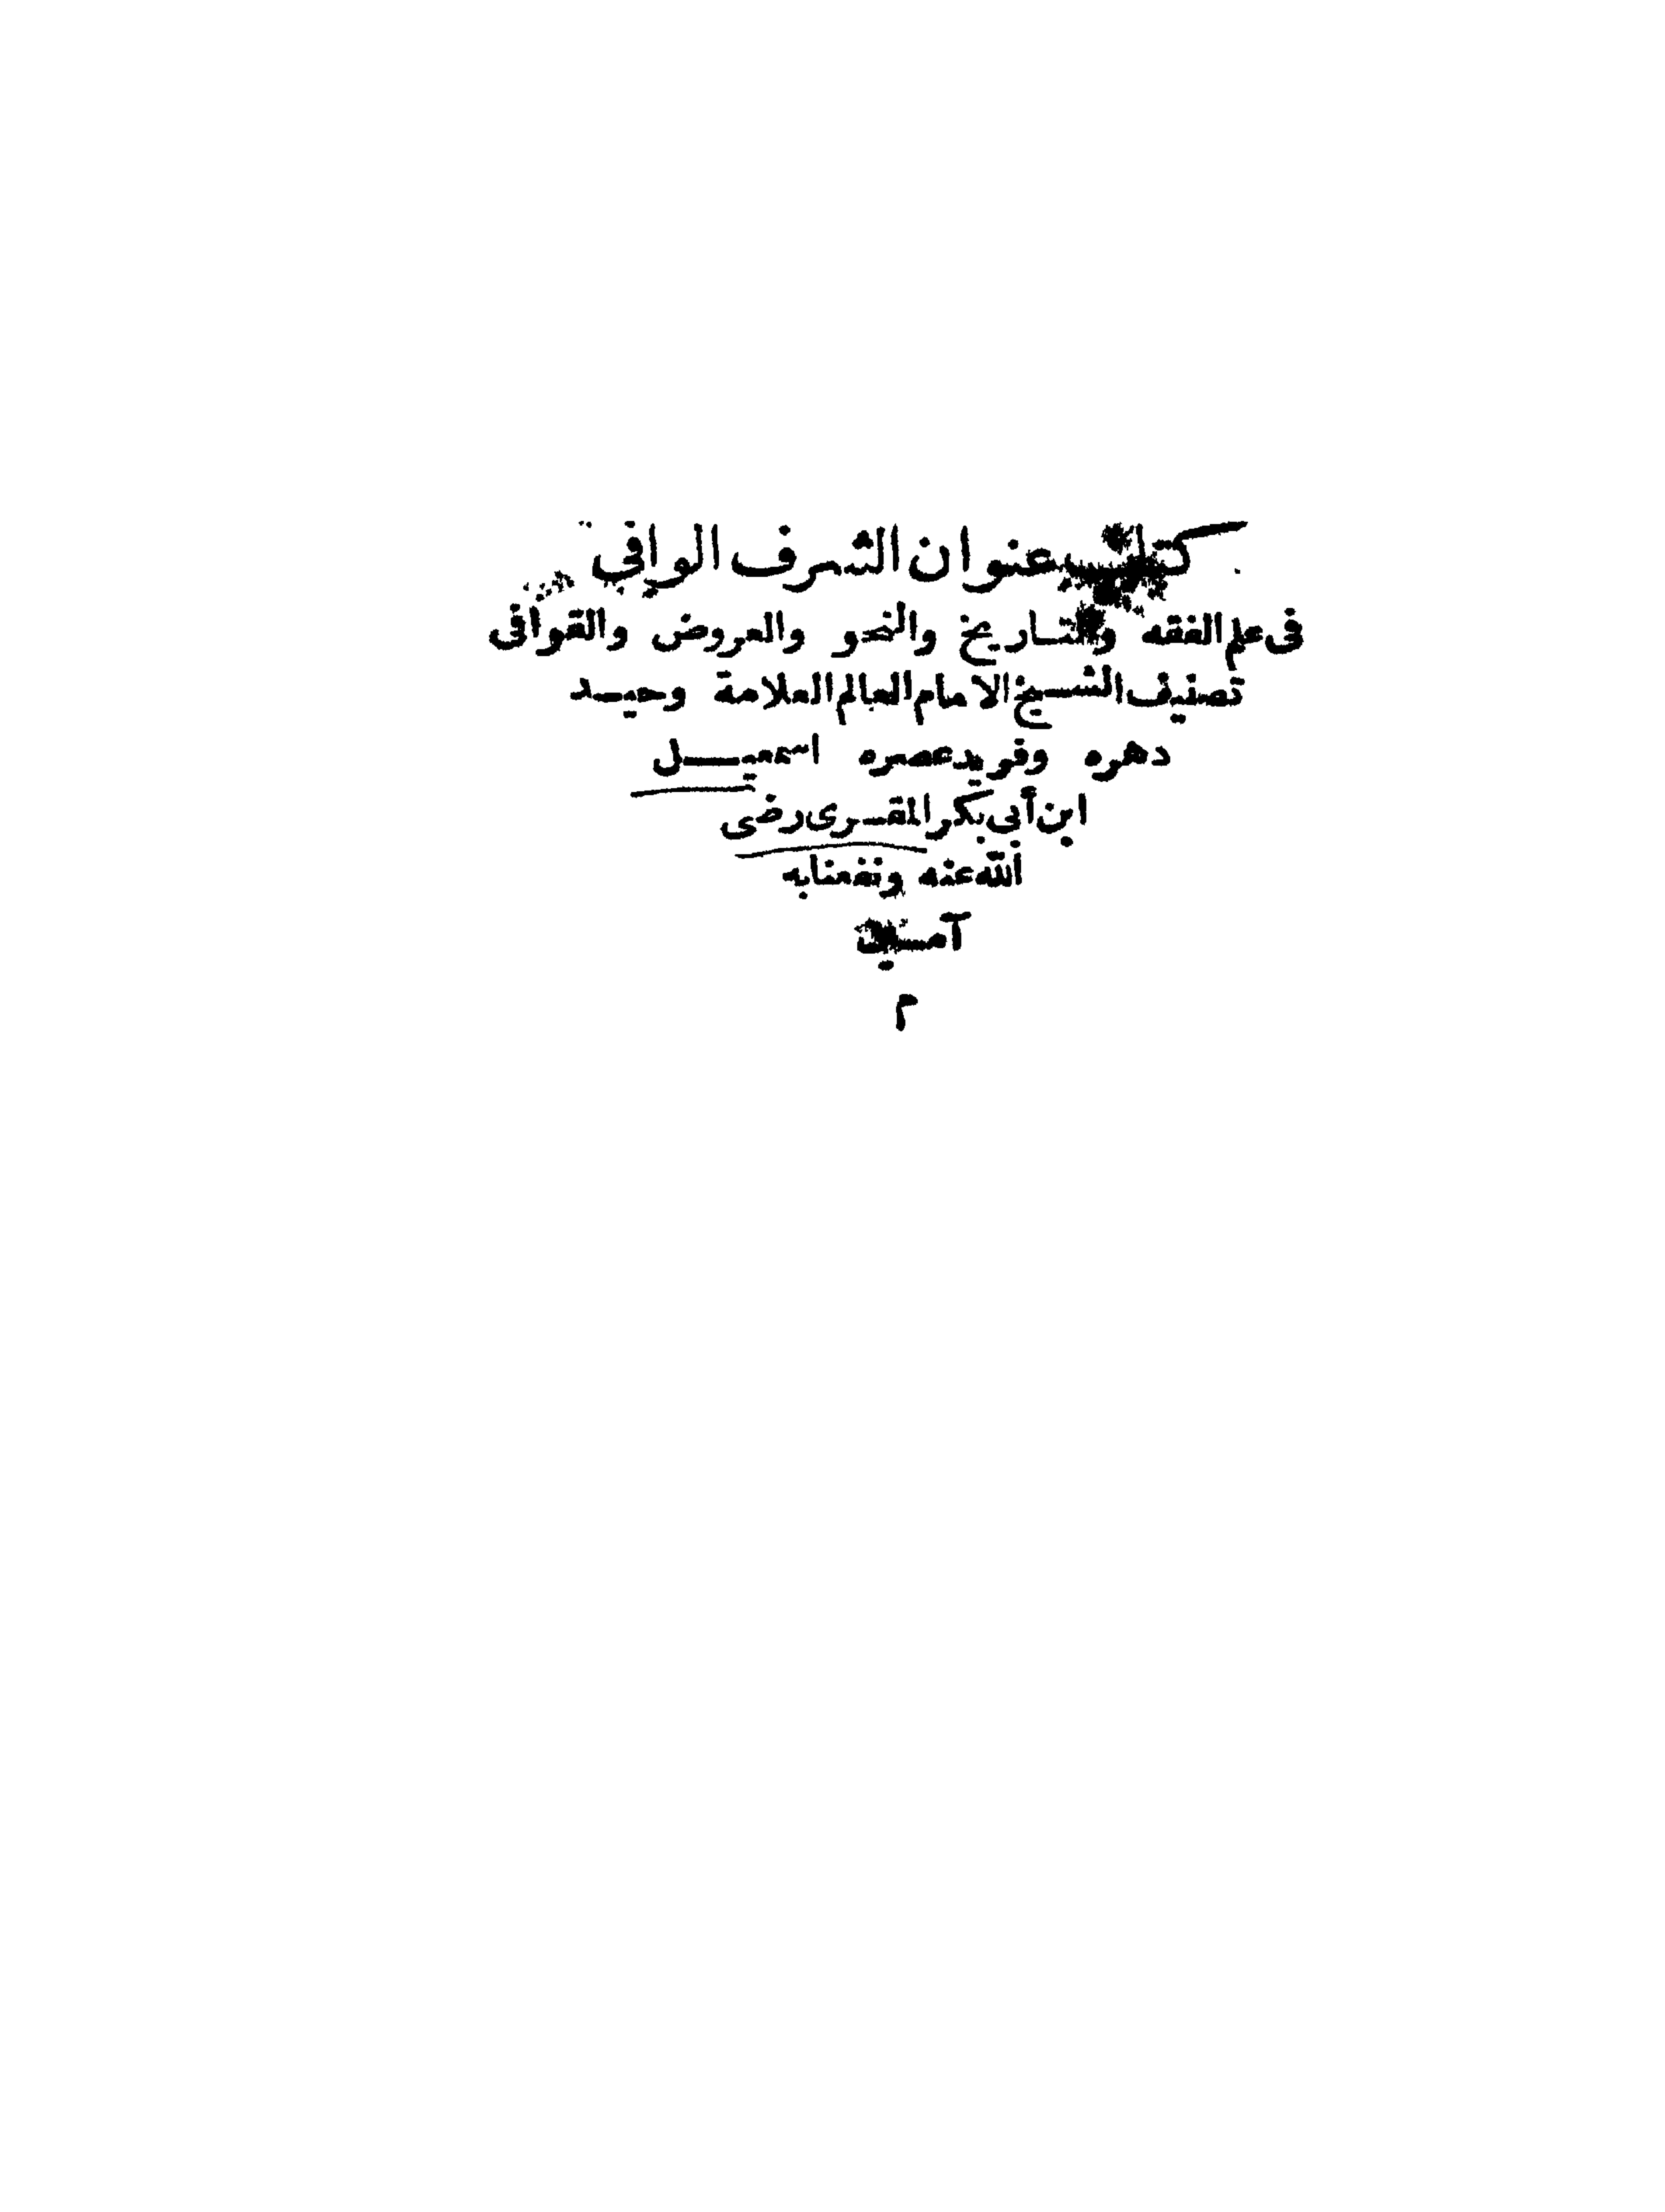 كتاب عنوان الشرف الوافى
فى علم الفقه والتاريخ والنحو والعروض والقوافى
تصنيف الشيخ الامام العالم العلامة وحيد
دهره وفريد عصره اسمعيل
ابن أبى بكر المقرى رضى
الله عنه ونفعنا به
آمين
م